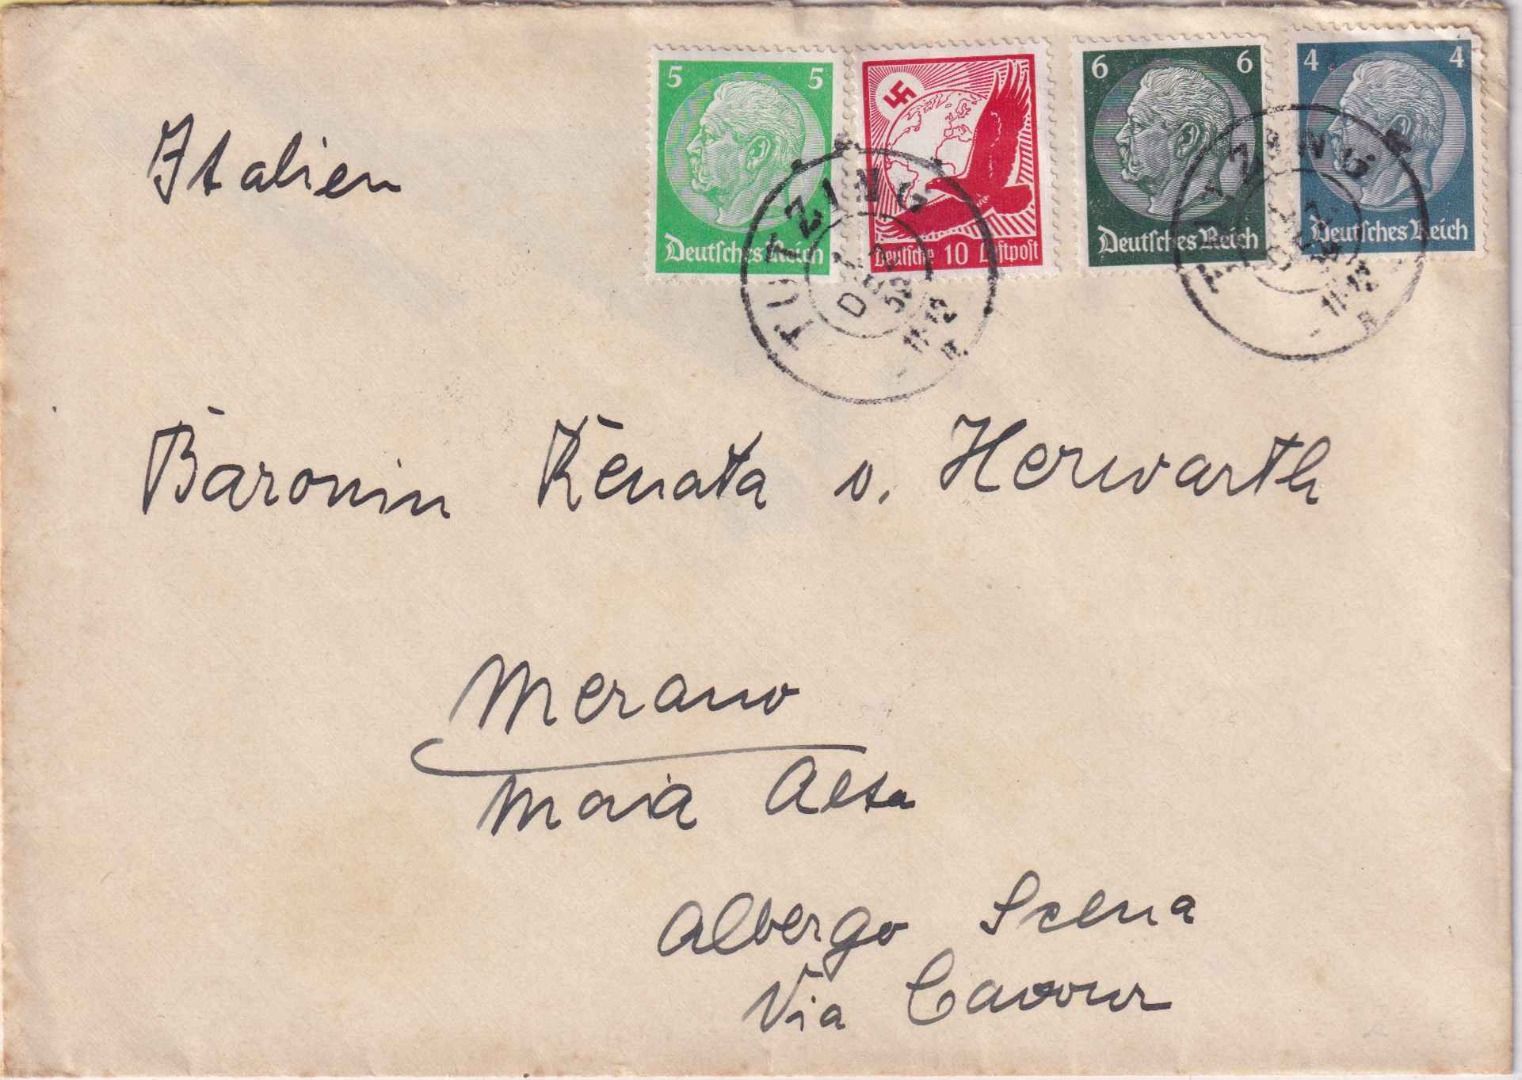 5 5
Deutsches Reich
Deutsche 10 Luftpost
6 6
Deutsches Reich
4 4
Deutsches Reich
TUTZING
DEZ
11-12
TUTZING
11-12
Italien
Baronin Renata v. Herwarth
Merano
Maia Alta
Albergo Scena
Via Cavour